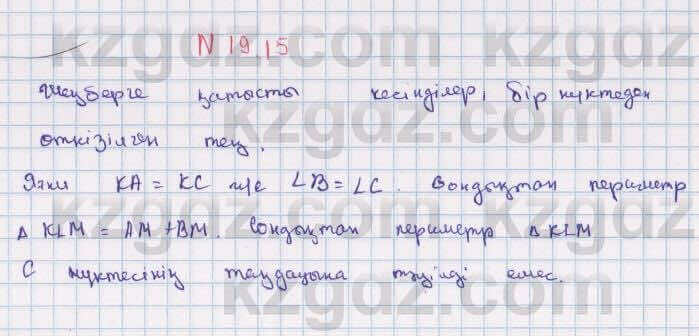 N 19.15
Шеңберге қатысты кесінділер, бір нүктеден
өткізілген тең.
Яғни KA = KC ж/е ∠B = ∠C. Сондықтан периметр
Δ KLM = AM + BM. Сондықтан периметр Δ KLM
C нүктесінің таңдауына тәуелді емес.
kzgdz.com